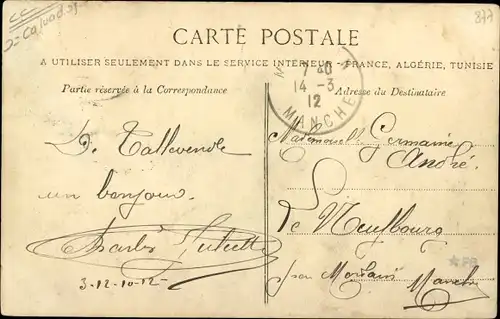 CC
877
CARTE POSTALE
A UTILISER SEULEMENT DANS LE SERVICE INTÉRIEUR - FRANCE, ALGÉRIE, TUNISIE
Partie réservée à la Correspondance
Adresse du Destinataire
7
14 - 3
12
MANCHE
De Tallevende
un bonjour
Charles
3-12-10-12
Mademoiselle Germaine
André
Le Neufbourg
par Mortain Manche